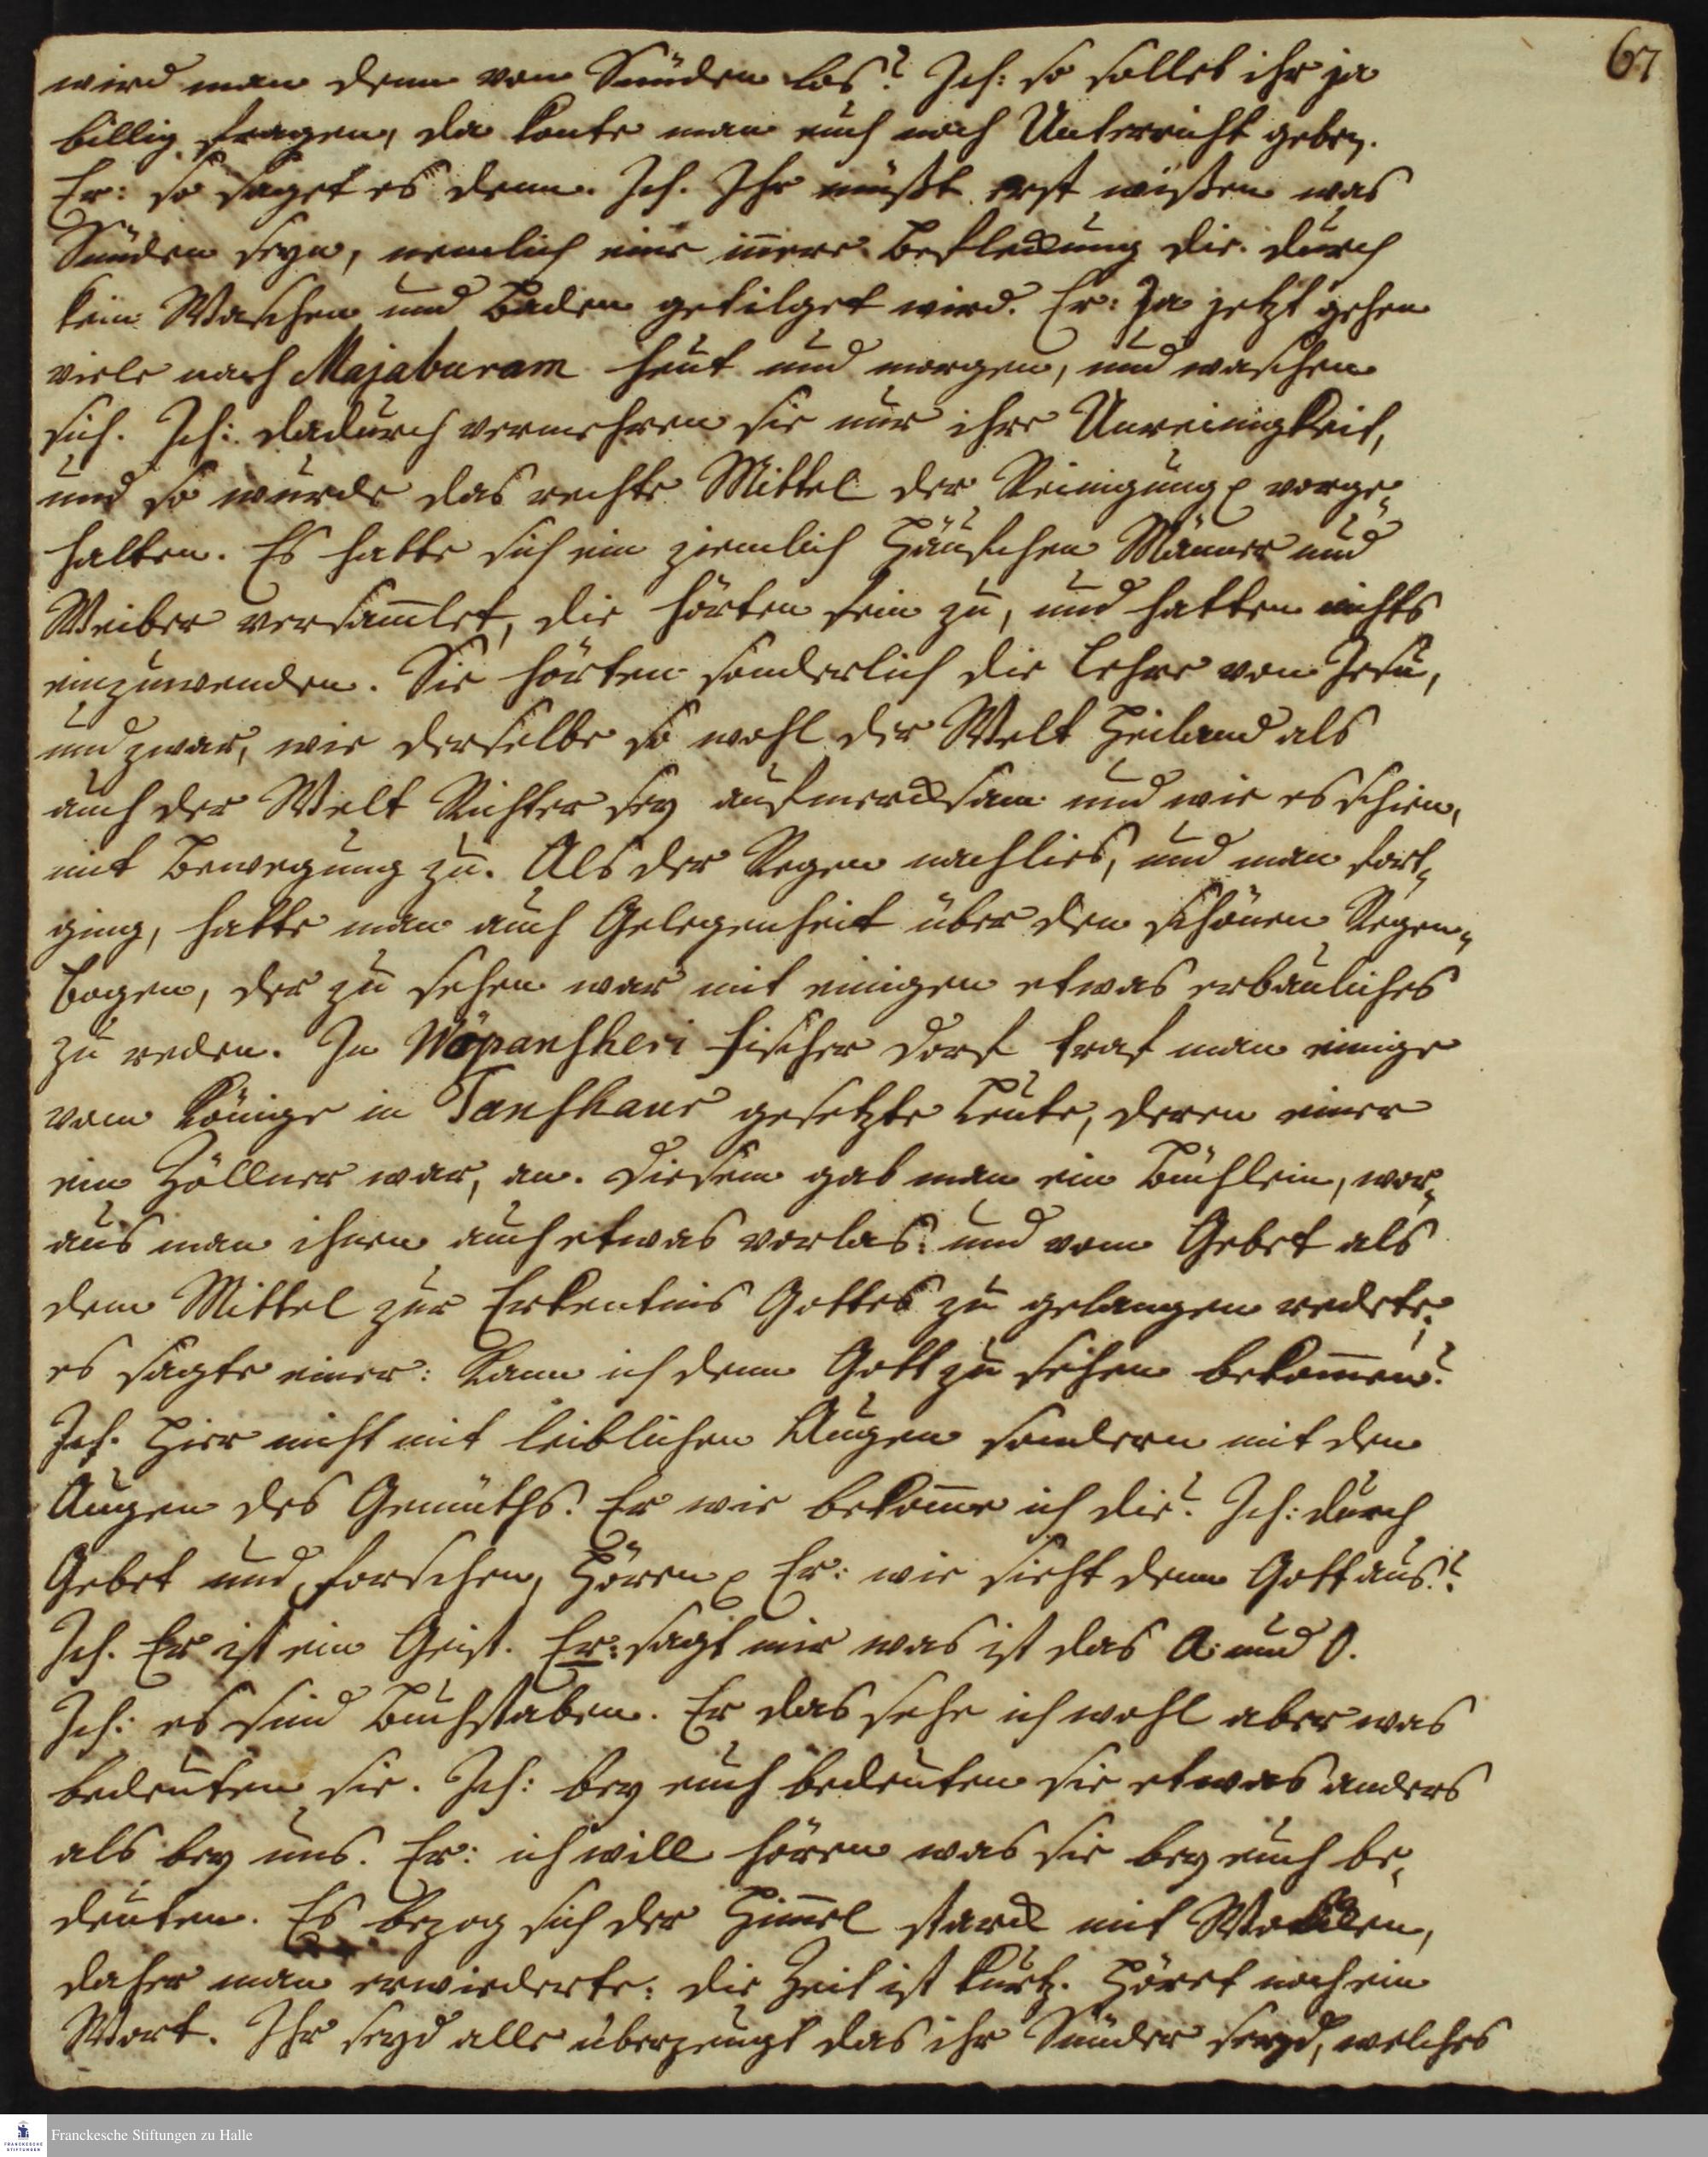 67
wird man denn von Sünden los? Ich: so solltet ihr ja
billig fragen, da konte man euch noch Unterricht geben.
Er: so saget es denn. Ich. Ihr müßt erst wißen was
Sünden seyn, nemlich eine iñere Befleckung die durch
kein Waschen und Baden getilget wird. Er: Ja jetzt gehen
viele nach Majaburam heut und morgen, und waschen
sich. Ich: dadurch vermehren sie nur ihre Unreinigkeit,
und so wurde das rechte Mittel der Reinigung p vorge-
halten. Es hatte sich ein ziemlich Häufchen Männer und
Weiber versam̃let, die hörten fein zu, und hatten nichts
einzuwenden. Sie hörten sonderlich die Lehre von Jesu,
und zwar, wie derselbe so wohl der Welt Heiland als
auch der Welt Richter sey aufmercksam und wie es schien,
mit Bewegung zu. Als der Regen nachlies, und man fort-
ging, hatte man auch Gelegenheit über den schönen Regen-
bogen, der zu sehen war mit einigen etwas erbauliches
zu reden. In Wöpanscheri Fischer Dorf traf man einige
vom Könige in Tanschaur gesetzte Leute, deren einer
ein Zöllner war, an. Diesem gab man ein Büchlein, wor-
aus man ihnen auch etwas vorlas: und vom Gebet als
dem Mittel zur Erkentnis Gottes zu gelangen redete;
es sagte einer: Kann ich denn Gott zu sehen bekom̃en?
Ich. Hier nicht mit leiblichen Augen sondern mit den
Augen des Gemüths. Er wie bekom̃e ich die? Ich: durch
Gebet und forschen, Hören p Er: wie sieht denn Gott aus?
Ich. Er ist ein Geist. Er: sagt mir was ist das A und O.
Ich: es sind Buchstaben. Er das sehe ich wohl aber was
bedeuten sie. Ich: bey euch bedeuten sie etwas anders
als bey uns. Er: ich will hören was sie bey euch be-
deuten. Es bezog sich der Him̃el starck mit Wolcken,
daher man erwiederte: die Zeit ist kurtz. Höret noch ein
Wort. Ihr seyd alle überzeugt das ihr Sünder seyd, welches
Franckesche Stiftungen zu Halle